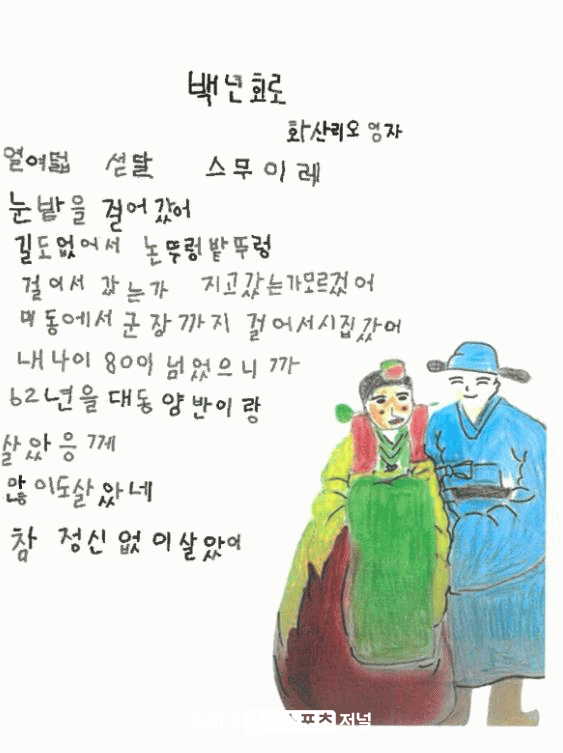 백년회로
화산리 오영자
열여덟 섣달 스무이레
눈밭을 걸어 갔어
길도 없어서 논뚜렁 밭뚜렁
걸어서 갔는가 지고 갔는가 모르겄어
대동에서 군장까지 걸어서 시집갔어
내 나이 80이 넘었으니까
62년을 대동양반이랑
살았응께
많이도 살았네
참 정신없이 살았어
스포츠저널